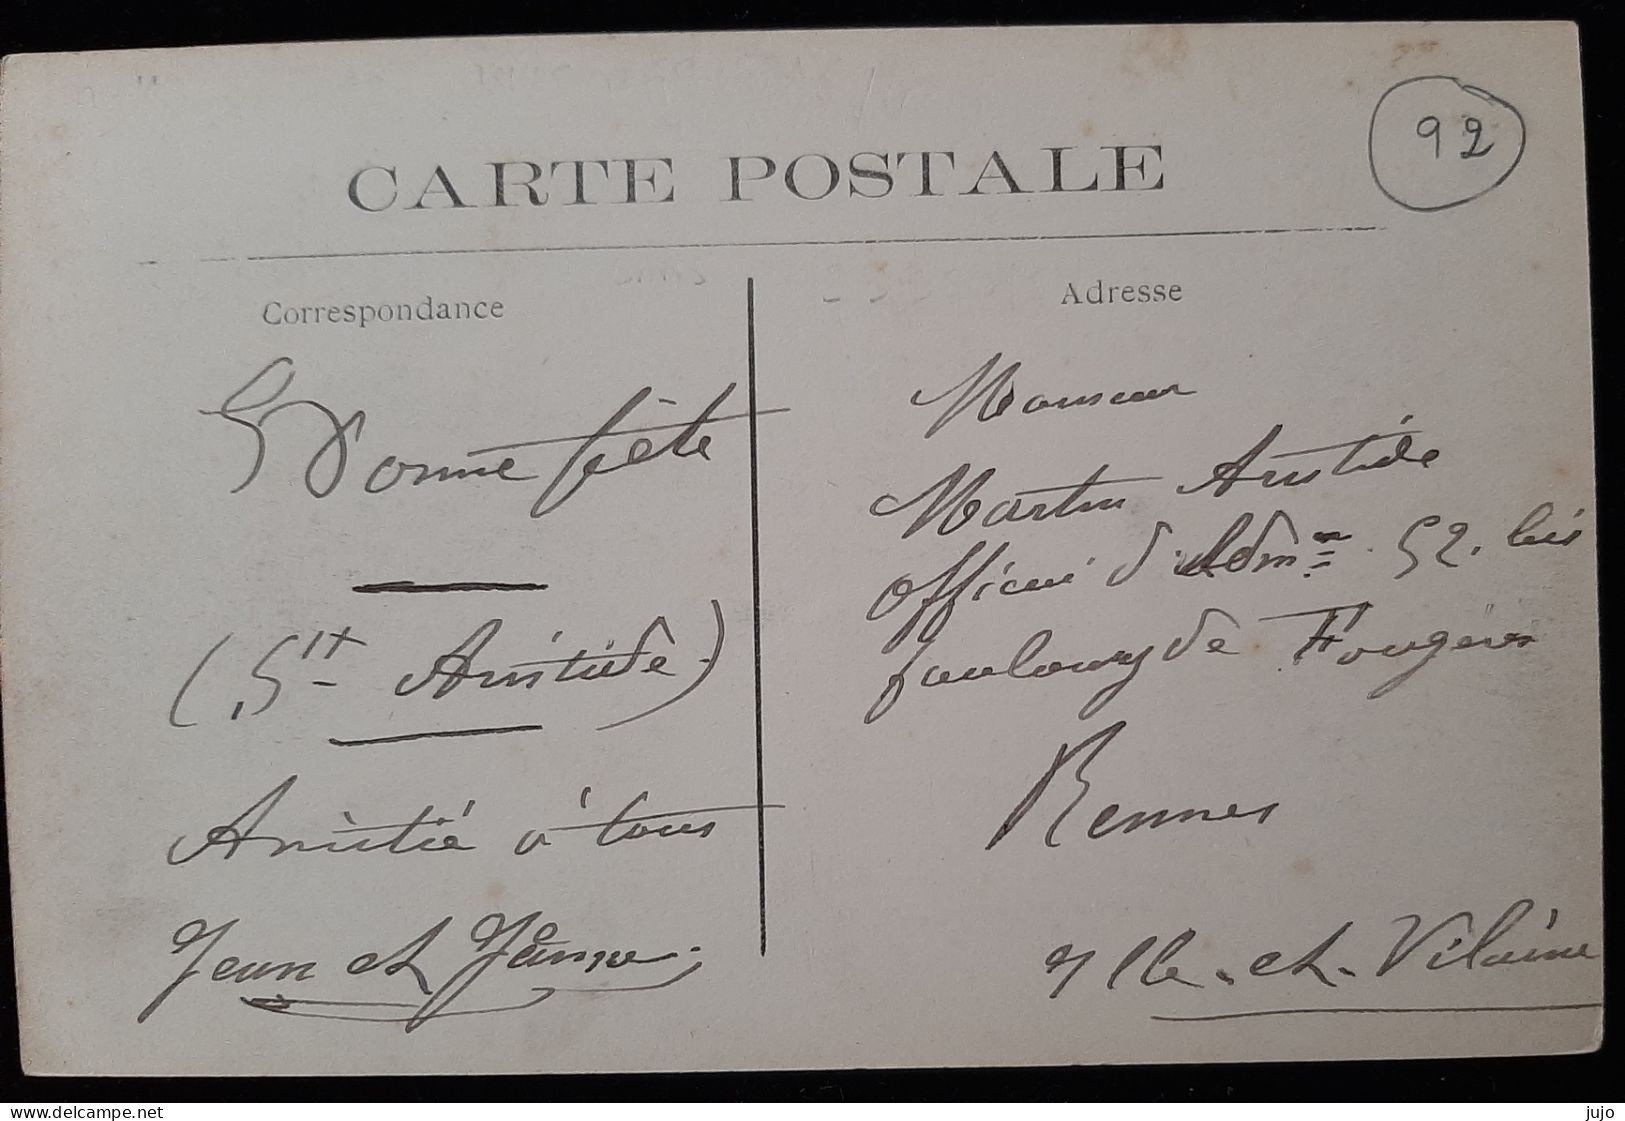 92
CARTE POSTALE
Correspondance
Adresse
Bonne fête
(St Aristide)
Amitié à tous
Jean et Jeanne
Monsieur
Martin Aristide
Officier d'Adm.on 52. bis
faubourg de Fougères
Rennes
Ille-et-Vilaine
www.delcampe.net
jujo